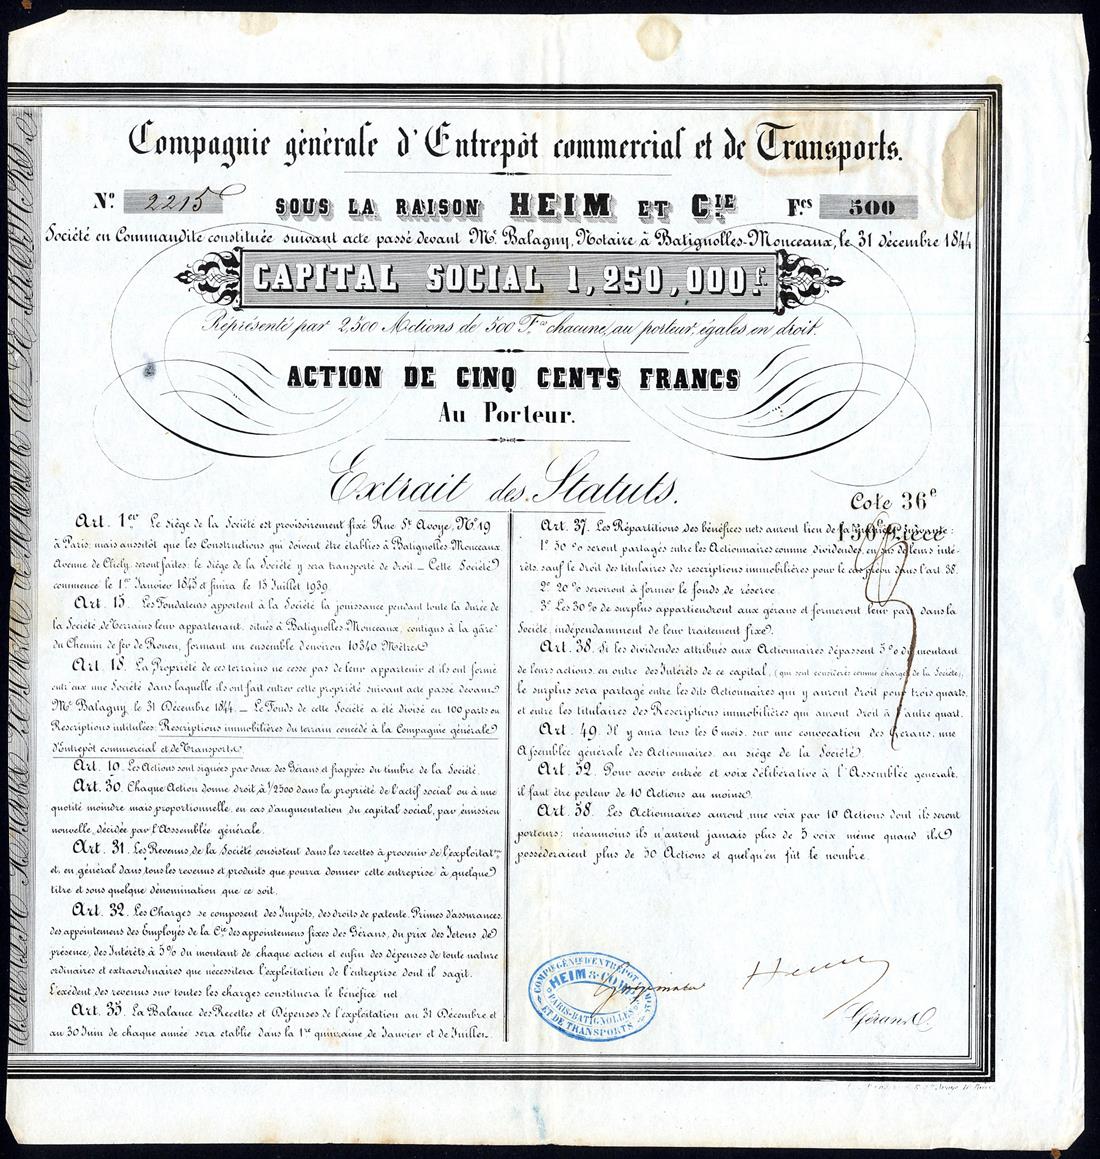 Compagnie générale d'Entrepôt commercial et de Transports.
N.º 2215
SOUS LA RAISON HEIM ET C.IE
F.cs 500
Société en Commandite constituée suivant acte passé devant M.e Balagny, Notaire à Batignolles-Monceaux, le 31 décembre 1844
CAPITAL SOCIAL 1,250,000 f.
Réprésenté par 2,500 Actions de 500 F.cs chacune, au porteur, égales en droit.
ACTION DE CINQ CENTS FRANCS
Au Porteur.
Extrait des Statuts.
Cote 36e
Art. 1er Le siége de la Société est provisoirement fixé Rue St Avoye, No 19
à Paris; mais aussitôt que les Constructions qui doivent être établies à Batignolles Monceaux
Avenue de Clichy, seront faites; le siége de la Société y sera transporté de droit — Cette Société
commence le 1er Janvier 1845 et finira le 15 Juillet 1939.
Art. 15. Les Fondateurs apportent à la Société la jouissance pendant toute la durée de
la Société, de Terrains leur appartenant, situés à Batignolles-Monceaux, contigus à la gâre
du Chemin de fer de Rouen, formant un ensemble d'environ 10340 Mètres
Art. 18. La Propriété de ces terrains ne cesse pas de leur appartenir et ils ont formé
entr'eux une Société dans laquelle ils ont fait entrer cette propriété suivant acte passé devant
Me Balagny, le 31 Décembre 1844. — Le Fonds de cette Société a été divisé en 100 parts ou
Rescriptions intitulées: Rescriptions immobilières du terrain concédé à la Compagnie générale
d'Entrepôt commercial et de Transports.
Art. 19. Les Actions sont signées par deux des Gérans et frappées du timbre de la Société.
Art. 30. Chaque Action donne droit à 1/2500 dans la propriété de l'actif social ou à une
quotité moindre mais proportionnelle, en cas d'augmentation du capital social, par émission
nouvelle, décidée par l'Assemblée générale.
Art. 31. Les Revenus de la Société consistent dans les recettes à provenir de l'exploitat.on
et, en général dans tous les revenus et produits que pourra donner cette entreprise à quelque
titre et sous quelque dénomination que ce soit.
Art. 32. Les Charges se composent des Impôts, des droits de patente, Primes d'assurances,
des appointemens des Employés de la Cie, des appointemens fixes des Gérans, du prix des Jetons de
présence, des Intérêts à 5% du montant de chaque action et enfin des dépenses de toute nature
ordinaires et extraordinaires que nécessitera l'exploitation de l'entreprise dont il s'agit.
L'excédent des revenus sur toutes les charges constituera le bénéfice net
Art. 35. La Balance des Recettes et Dépenses de l'exploitation au 31 Décembre et
au 30 Juin de chaque année sera établie dans la 1re quinzaine de Janvier et de Juillet.
Art. 37. Les Répartitions des bénéfices nets auront lieu de la manière suivante:
1º 50 % seront partagés entre les Actionnaires comme dividendes, en sus de leurs inté-
rêts, sauf le droit des titulaires des rescriptions immobilières pour le cas prévu dans l'art. 38.
2º 20 % serviront à former le fonds de réserve.
3º Les 30 % de surplus appartiendront aux gérans et formeront leur part dans la
Société, indépendamment de leur traitement fixe.
Art. 38. Si les dividendes attribués aux Actionnaires dépassent 5 % du montant
de leurs actions, en outre des Intérêts de ce capital, (qui sont considérés comme charges de la Société),
le surplus sera partagé entre les dits Actionnaires qui y auront droit pour trois quarts,
et entre les titulaires des Rescriptions immobilières qui auront droit à l'autre quart.
Art. 49. Il y aura tous les 6 mois, sur une convocation des Gérans, une
Assemblée générale des Actionnaires, au siége de la Société.
Art. 52. Pour avoir entrée et voix délibérative à l'Assemblée générale,
il faut être porteur de 10 Actions au moins.
Art. 58. Les Actionnaires auront une voix par 10 Actions dont ils seront
porteurs; néanmoins ils n'auront jamais plus de 5 voix même quand ils
possèderaient plus de 50 Actions et quelqu'en fût le nombre.
COMP.IE GÉN.LE D'ENTREPÔT
HEIM & COMP.
PARIS-BATIGNOLLES
ET DE TRANSPORTS
Heim
Gérans.